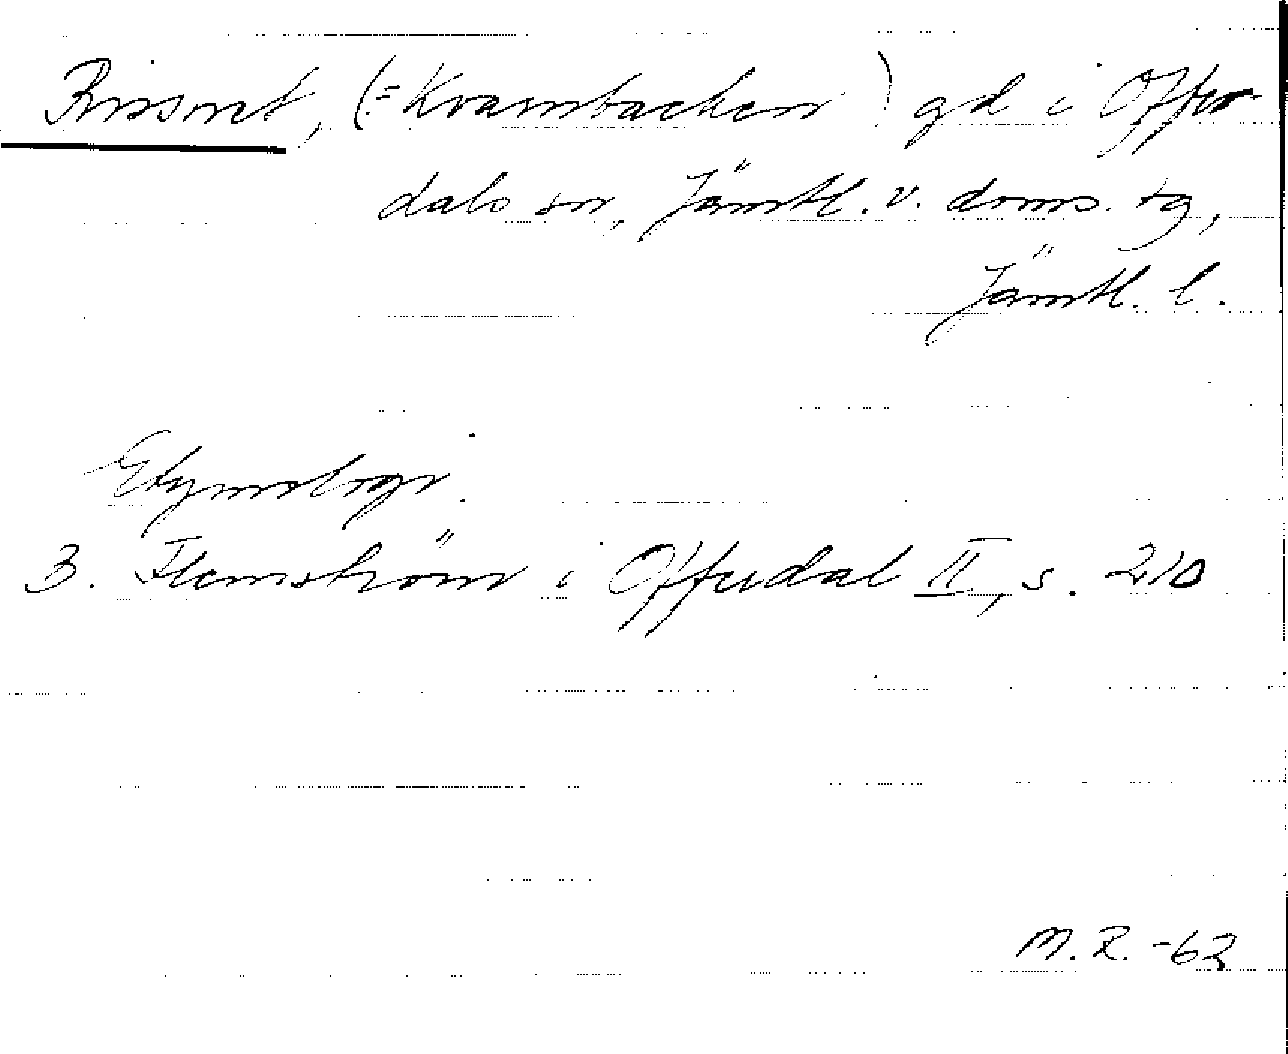 Rissnet, (= Krambacken) gd i Offer-
dals sn, Jämtl. v. doms. tg,
Jämtl. l.
Etymologi.
B. Flemström i Offerdal II, s. 210
M. R. -62